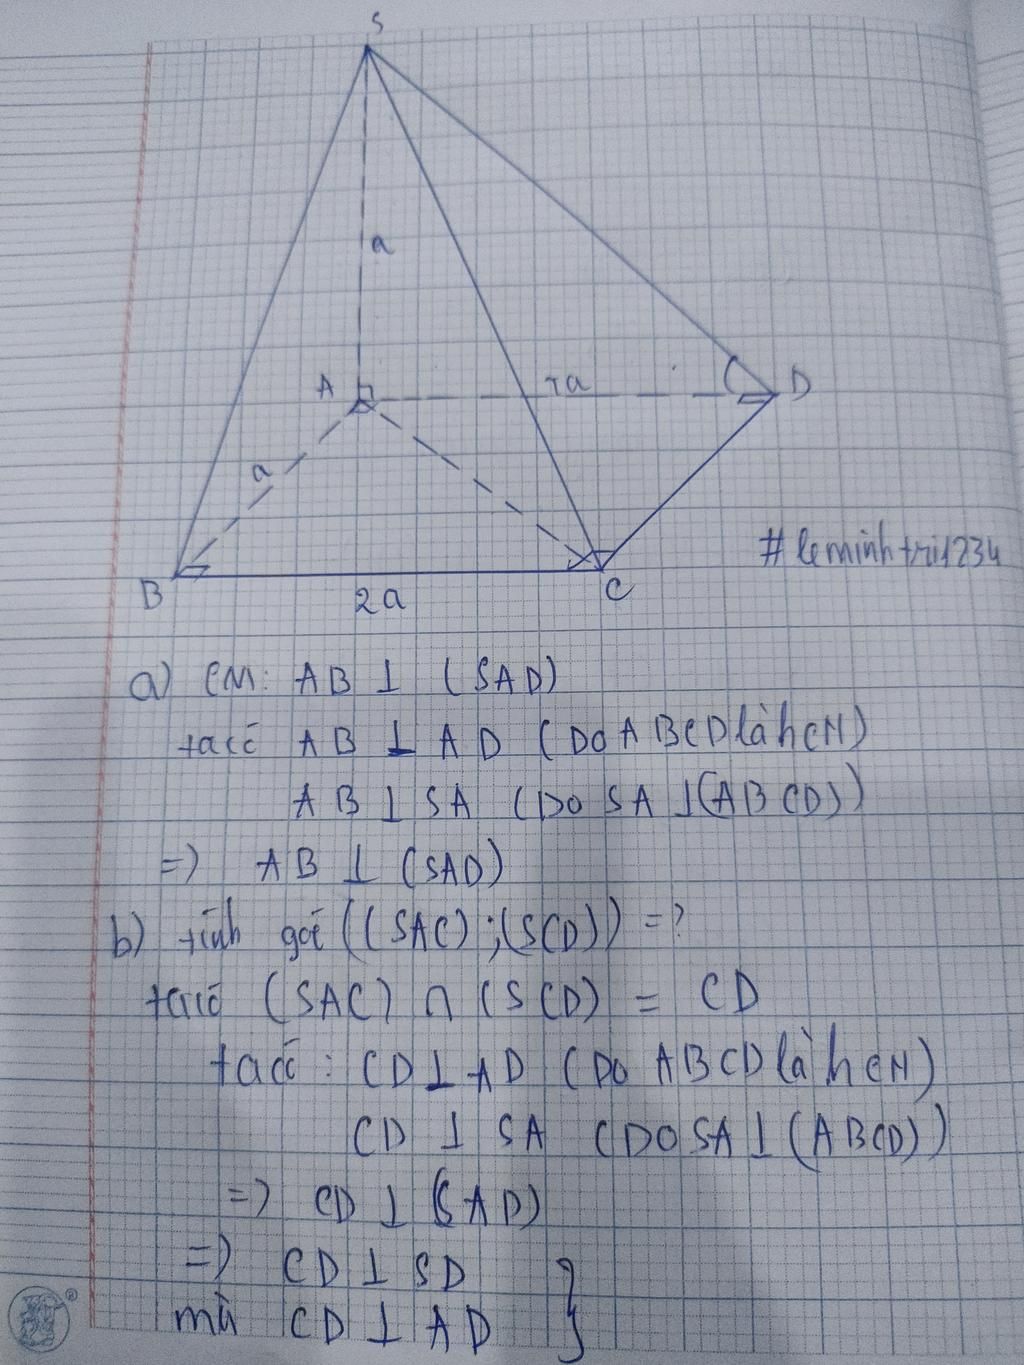 S
a
A
2a
D
a
B
2a
C
#leminhtri1234
a) CM: AB ⊥ (SAD)
ta có AB ⊥ AD (DO ABCD là hCN)
AB ⊥ SA (DO SA ⊥ (ABCD))
=> AB ⊥ (SAD)
b) tính góc ((SAC);(SCD)) = ?
ta có (SAC) ∩ (SCD) = CD
ta có : CD ⊥ AD (DO ABCD là hCN)
CD ⊥ SA (DO SA ⊥ (ABCD))
=> CD ⊥ (SAD)
=> CD ⊥ SD }
mà CD ⊥ AD